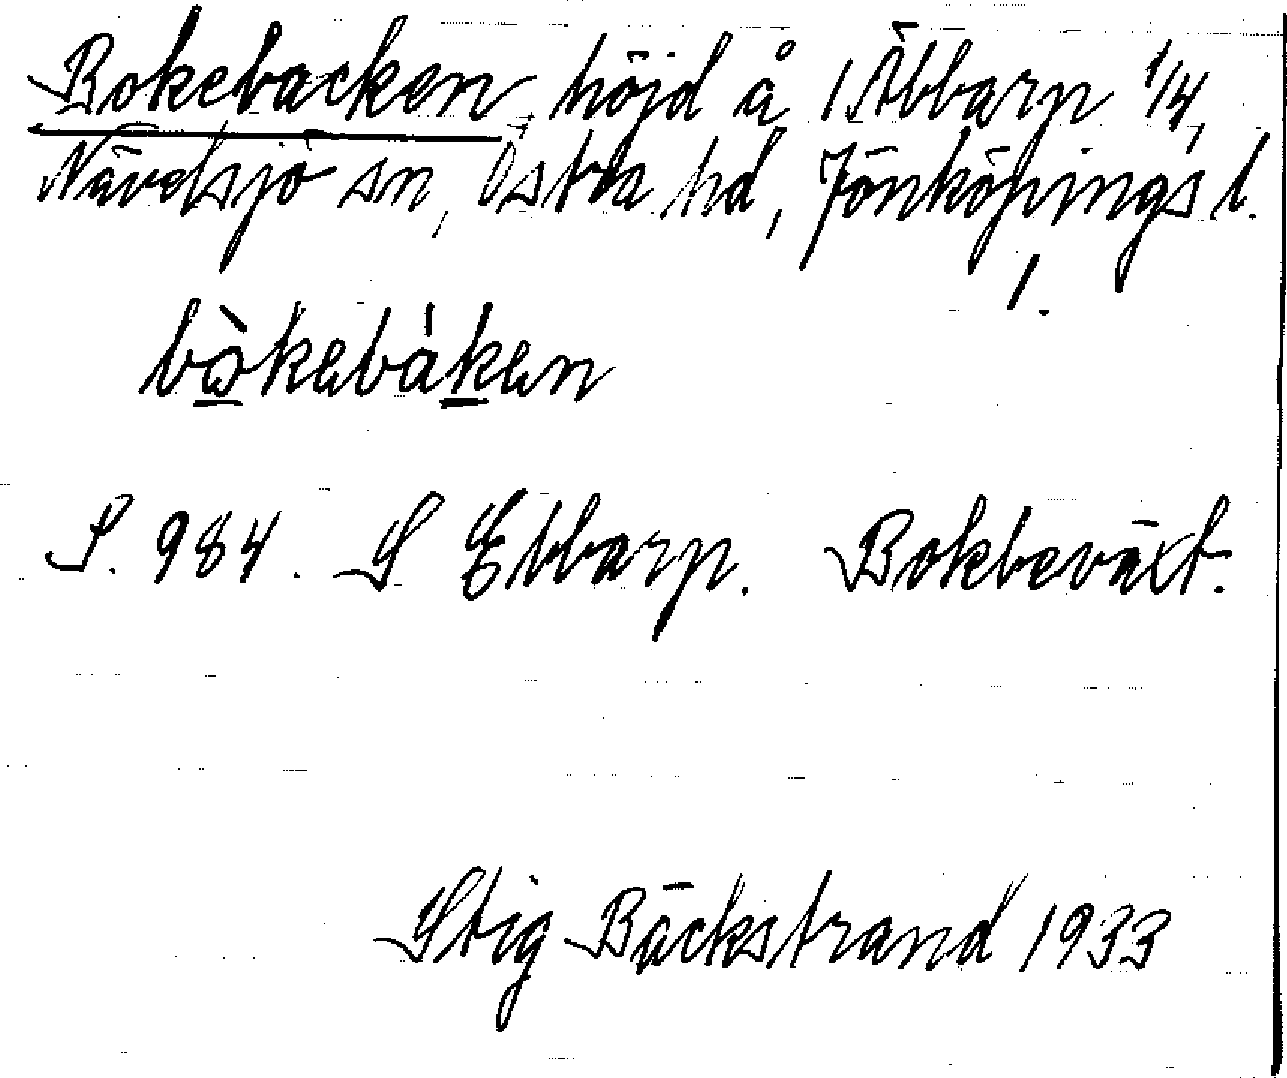 Bokebacken, höjd å 1 Äbbarp 1/4,
Nävelsjö sn, Östra hd, Jönköpings l.
1.
bòkebáken
S. 984. S Ebbarp. Bokbeväxt.
Stig Bäckstrand 1933